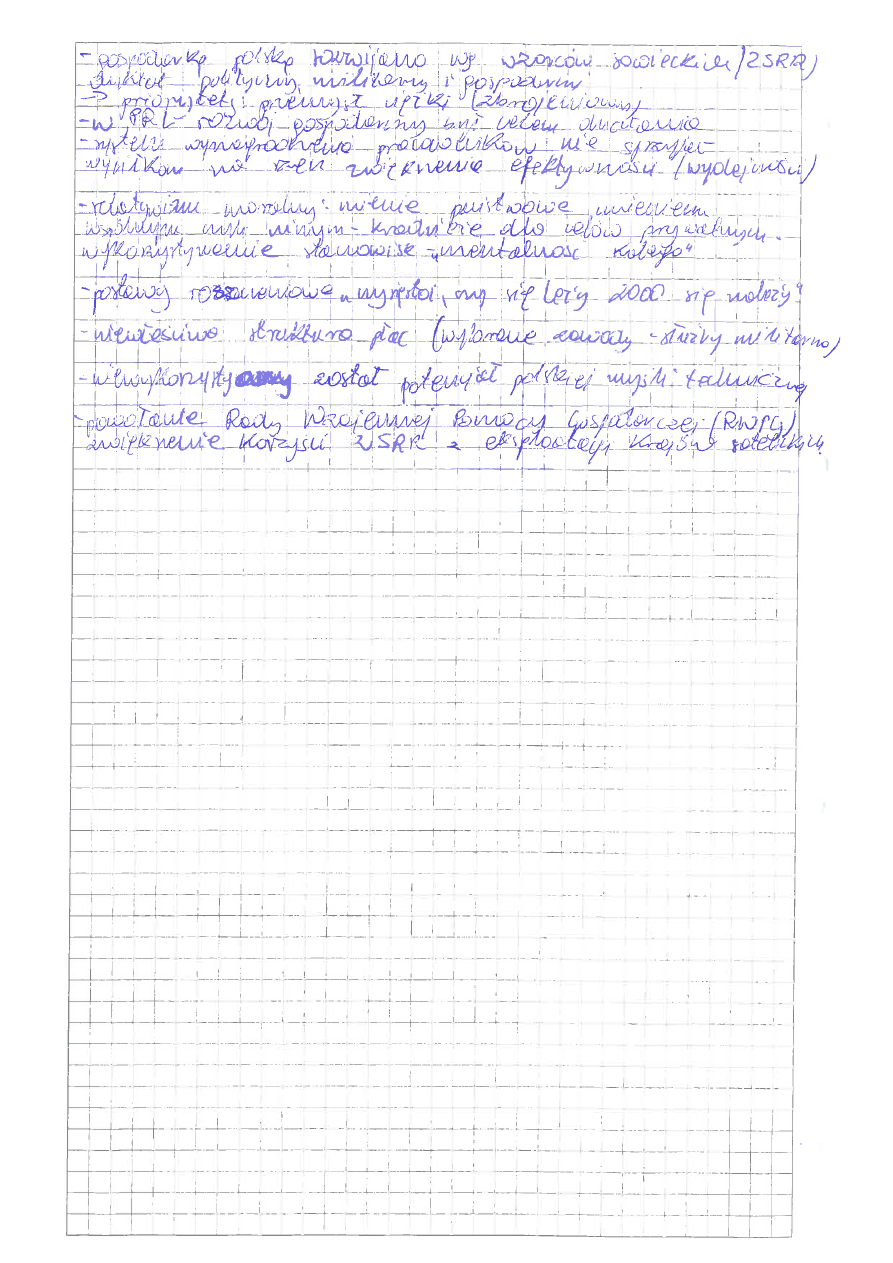 - gospodarkę polską rozwijano wg wzorców sowieckich (ZSRR)
dyktat polityczny, militarny i gospodarczy
→ priorytety: przemysł ciężki (zbrojeniowy)
- w PRL rozwój gospodarczy był celem działania
- system wynagrodzenia pracowników nie sprzyjał
wysiłkom na rzecz zwiększenia efektywności (wydajności)
- relatywizm moralny: mienie państwowe mieniem
wspólnym czyli niczym - kradzieże dla celów prywatnych.
wykorzystywanie stanowisk - „mentalność Kalego"
- postawy roszczeniowe „czy się stoi, czy się leży 2000 się należy"
- niewłaściwa struktura płac (wybrane zawody - służby militarne)
- niewykorzystany został potencjał polskiej myśli technicznej
- powołanie Rady Wzajemnej Pomocy Gospodarczej (RWPG)
zwiększenie korzyści ZSRR z eksploatacji krajów satelickich